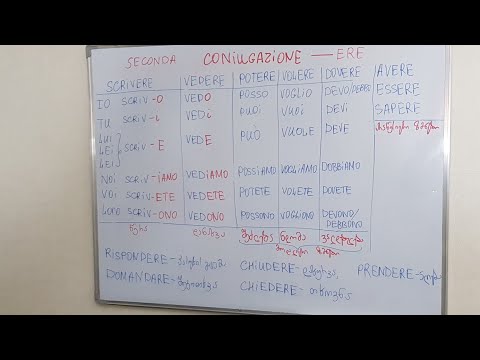 SECONDA CONIUGAZIONE — ERE
SCRIVERE VEDERE POTERE VOLERE DOVERE AVERE
IO SCRIV-O VEDO POSSO VOGLIO DEVO/DEBBO ESSERE
TU SCRIV-i VEDi PUOI VUOI DEVI SAPERE
LUI
LEI SCRIV-E VEDE PUÒ VUOLE DEVE
LEI
NOI SCRIV-iAMO VEDiAMO POSSiAMO VOGLiAMO DOBBiAMO
VOI SCRIV-ETE VEDETE POTETE VOLETE DOVETE
LORO SCRIV-ONO VEDONO POSSONO VOGLIONO DEVONO/
DEBBONO
წერა დანახვა შეძლება ნდომა ვალდებულება
მოდალური ზმნები
RISPONDERE- პასუხის გაცემა CHIUDERE- დახურვა, PRENDERE- აღება
DOMANDARE- CHIEDERE- თხოვნა